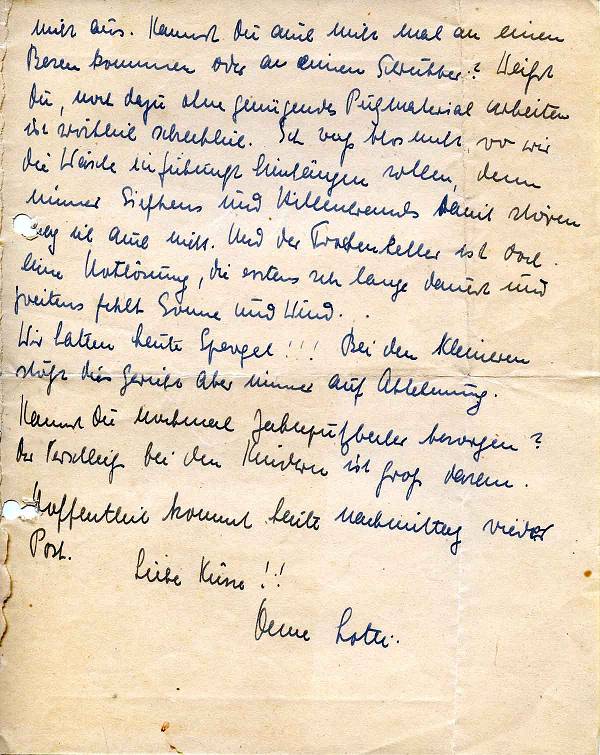 nicht aus. Kannst Du auch nicht mal an einen
Besen kommen oder an einen Schrubber? Weißt
Du, noch dazu ohne genügendes Putzmaterial arbeiten
ist wirklich schrecklich. Ich weiß bloß nicht, wo wir
die Wäsche in hinhängen sollen, denn
immer und damit stören
mag ich auch nicht. Und der Trockenkeller ist doch
eine Notlösung, die erstens sehr lange dauert und
zweitens fehlt Sonne und Wind...
Wir hatten heute Spargel!!! Bei den Kleineren
stößt dies Gemüse aber immer auf Ablehnung.
Kannst Du nochmal Zahnputzbecher besorgen?
Der Verschleiß bei den Kindern ist groß darin.
Hoffentlich kommt heute nachmittag wieder
Post.
Liebe Küsse!!
Deine Lotti.